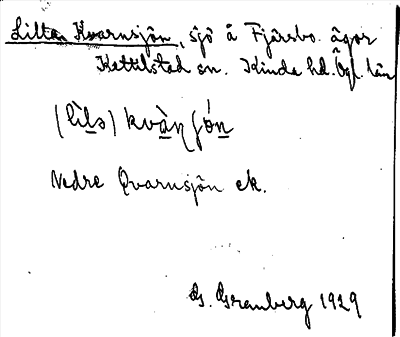 Lilla Kvarnsjön, sjö å Fjärsbo ägor
Kettilstad sn. Kinda hd. Ögl. län
(lìlə) kvàn ʃón
Nedre Qvarnsjön ek.
G. Granberg 1929